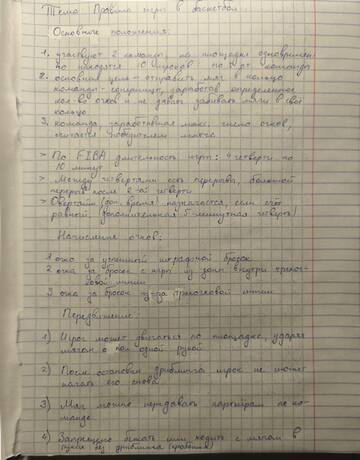 Тема: Правила игры в баскетбол.
Основные положения:
1. участвуют 2 команды, на площадке одновремен
но находятся 10 игроков по 5 от команды
2. основная цель - отправить мяч в кольцо
команды - соперницы, заработав определенное
кол-во очков и не давать забивать мячи в своё
кольцо
3. команда, заработавшая макс. число очков,
считается победителем матча
> По FIBA длительность игры: 4 четверти по
10 минут
> Между четвертями есть перерывы, большой
перерыв после 2-ой четверти
> Овертайм (доп. время) назначается, если счёт
равный (дополнительная 5-минутная четверть)
Начисление очков:
1 очко за успешный штрафной бросок
2 очка за бросок с игры из зоны внутри трехоч-
ковой линии
3 очка за бросок из-за трехочковой линии
Передвижение:
1) Игрок может двигаться по площадке, ударяя
мячом о пол одной рукой
2) После остановки дриблинга игрок не может
начать его снова
3) Мяч можно передавать партнёрам по ко-
манде
4) Запрещено бежать или ходить с мячом в
руках без дриблинга (пробежка)